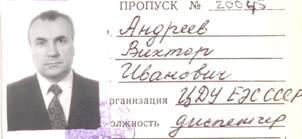 ПРОПУСК № 20045
Андреев
Виктор
Иванович
рганизация ЦДУ ЕЭС СССР
олжность диспетчер